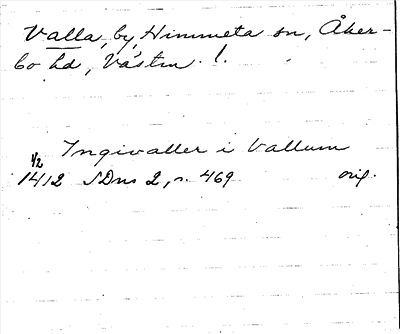 Valla, by, Himmeta sn, Åker-
bo hd, Västm. 1.
Ingivaller i Vallum
1/2
1412 SDns 2, s. 469 orig.